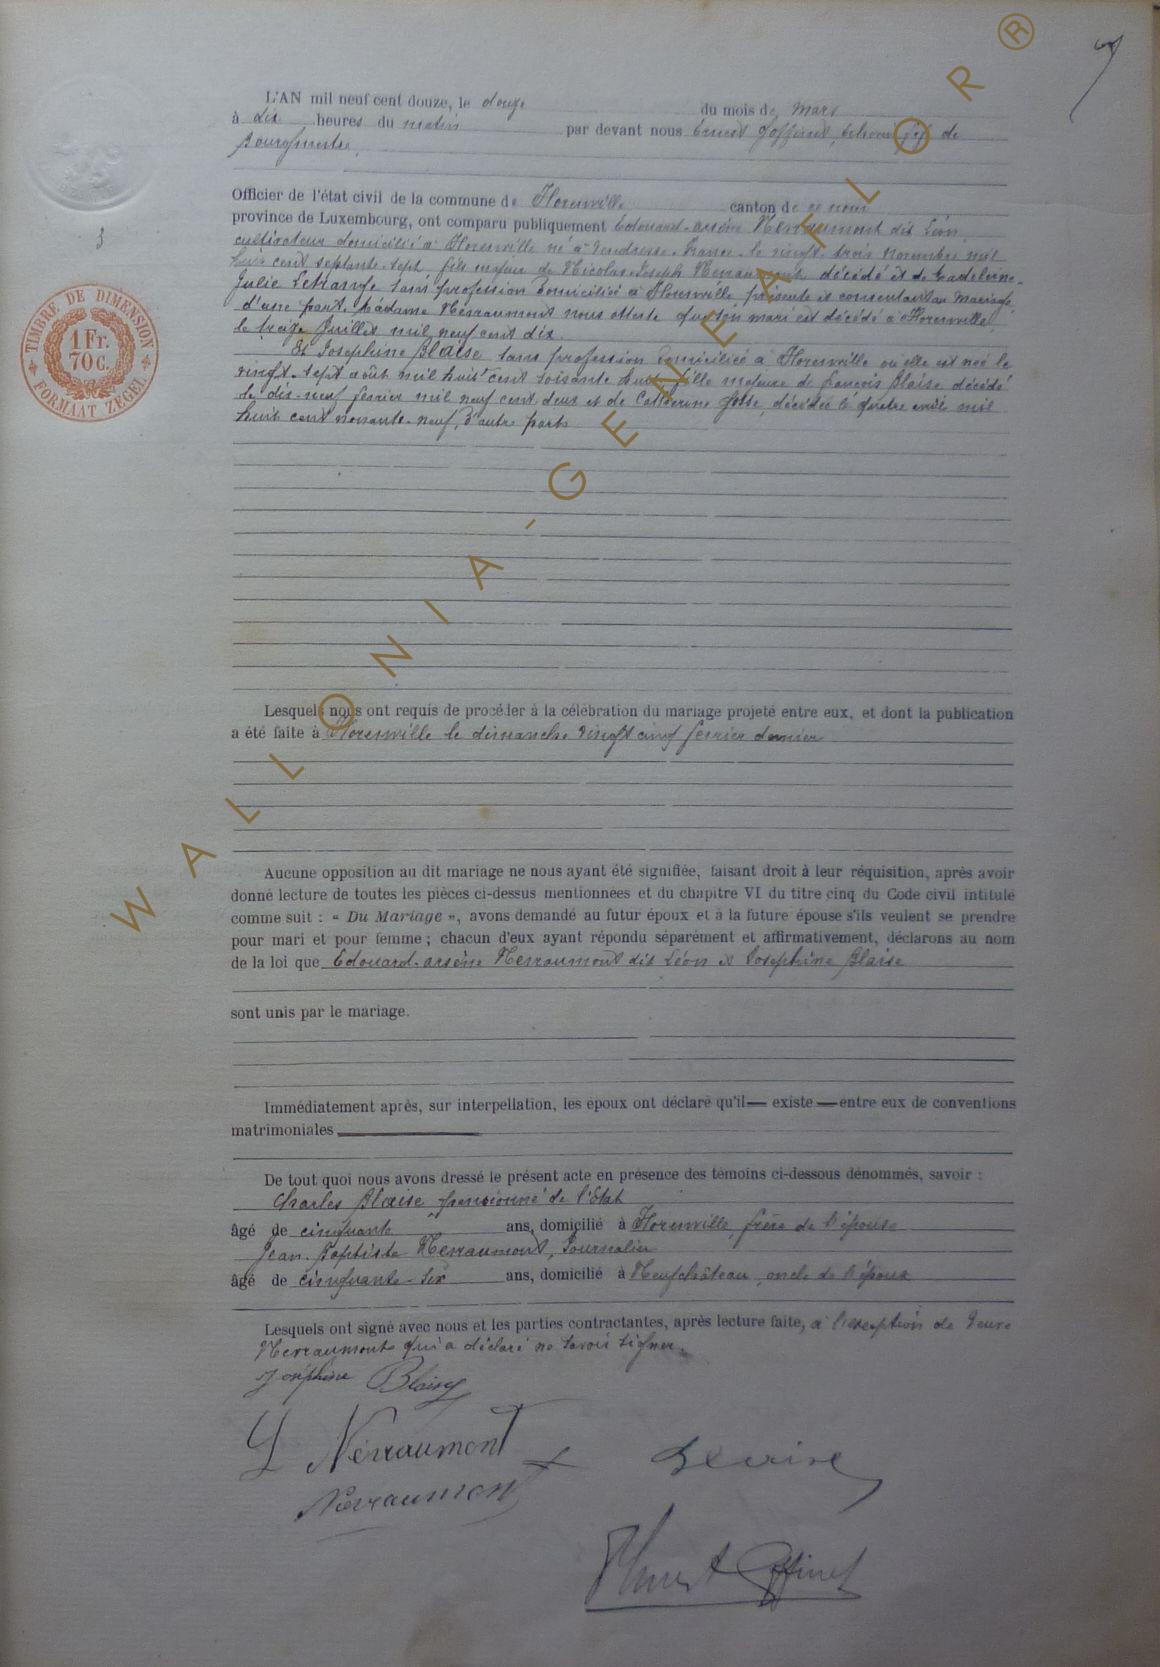 L'AN mil neuf cent douze, le douze du mois de mars
à dix heures du matin par devant nous Ernest Goffinet, Echevin, ff de
Bourgmestre,
Officier de l'état civil de la commune de Florenville canton de ce nom
province de Luxembourg, ont comparu publiquement Edouard-arsène Nerraumont dit Léon,
cultivateur domicilié à Florenville né à Vendresse, France, le vingt-trois novembre mil
huit cent septante-sept, fils majeur de Nicolas-Joseph Nerraumont, décédé et de
Julie sans profession domiciliée à Florenville, présente et consentant au mariage,
d'une part. Madame Nerraumont nous atteste que son mari est décédé à Florenville,
le treize Juillet mil neuf cent dix.
Et Joséphine Blaise sans profession domiciliée à Florenville où elle est née le
vingt-sept août mil huit cent soixante huit fille majeure de françois Blaise décédé
le dix-neuf février mil neuf cent deux et de Catherine décédée le quatre avril mil
huit cent nonante-neuf, d'autre part.
Lesquels nous ont requis de procéder à la célébration du mariage projeté entre eux, et dont la publication
a été faite à Florenville le dimanche vingt cinq février dernier
Aucune opposition au dit mariage ne nous ayant été signifiée, faisant droit à leur réquisition, après avoir
donné lecture de toutes les pièces ci-dessus mentionnées et du chapitre VI du titre cinq du Code civil intitulé
comme suit : « Du Mariage », avons demandé au futur époux et à la future épouse s'ils veulent se prendre
pour mari et pour femme ; chacun d'eux ayant répondu séparément et affirmativement, déclarons au nom
de la loi que Edouard-arsène Nerraumont dit Léon et Joséphine Blaise
sont unis par le mariage.
Immédiatement après, sur interpellation, les époux ont déclaré qu'il — existe — entre eux de conventions
matrimoniales
De tout quoi nous avons dressé le présent acte en présence des témoins ci-dessous dénommés, savoir :
Charles Blaise pensionné de l'Etat
âgé de cinquante ans, domicilié à Florenville, frère de l'épouse
Jean-Baptiste Nerraumont, Journalier
âgé de cinquante-six ans, domicilié à Neufchâteau, oncle de l'époux
Lesquels ont signé avec nous et les parties contractantes, après lecture faite, à l'exception de Veuve
Nerraumont qui a déclaré ne savoir signer.
Joséphine Blaise
L Nerraumont
Blaise
Nerraumont
Ernest Goffinet
3
TIMBRE DE DIMENSION
1 Fr.
70 C.
FORMAAT ZEGEL
WALLONIA-GENEAFLOR®